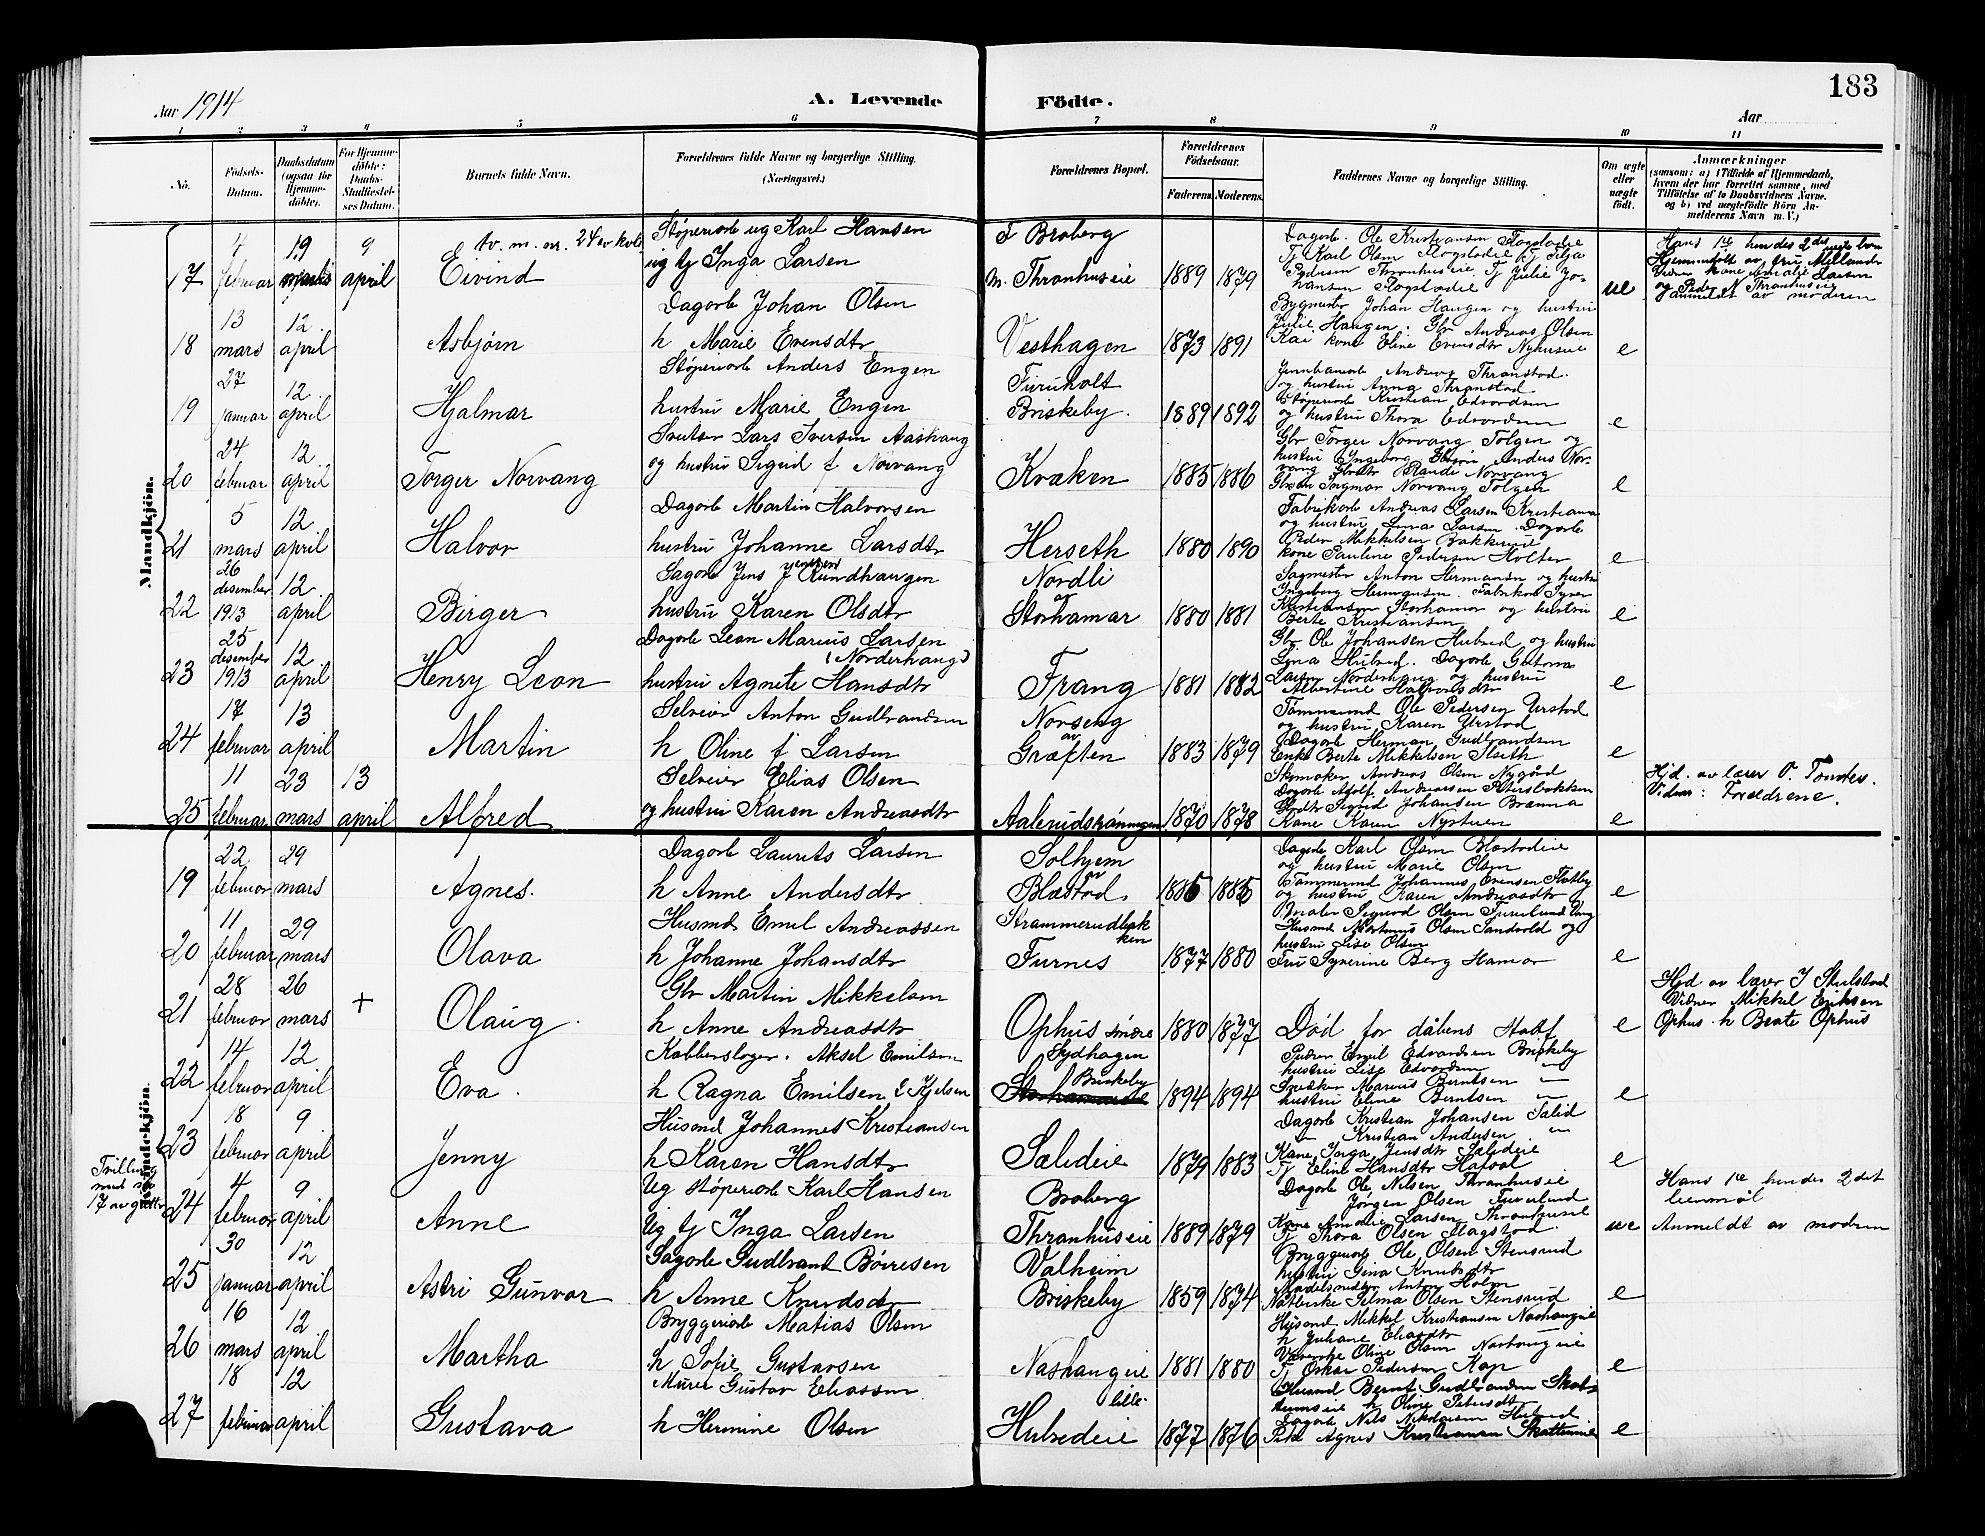 183
Aar 1914
A. Levende Födte.
Aar
1 2 3 4 5 6 7 8 9 10 11
No.
Födsels-Datum.
Daabsdatum (ogsaa for Hjemmedöbte).
For Hjemmedöbte: Daabs-Stadfæstelses Datum.
Barnets fulde Navn.
Forældrenes fulde Navne og borgerlige Stilling. (Næringsvei.)
Forældrenes Bopæl.
Forældrenes Födselsaar.
Faderens. Moderens.
Faddernes Navne og borgerlige Stilling.
Om ægte eller uægte födt.
Anmærkninger
(saasom: a) i Tilfælde af Hjemmedaab, hvem der har forrettet samme, med Tilföielse af to Daabsvidners Navne, og b) ved uægtefödte Börn Anmelderens Navn m. V.)
Mandkjön.
17 4 februar 19 martis 9 april
tv. m. nr. 24 av kvk
Eivind
Støperiarb ug Karl Hansen
ug tj Inga Larsen
F Broberg
M. Thronhuseie 1889 1879
Dagarb. Ole Kristiansen Flagstadeie
Tj Karl Olsen Flagstadeie Tj Silja
Pedersen Thronhuseie Tj Julie Jo-
hansen Flagstadeie
ue
Hans 1te hendes 2det uegte barn
Hjemmedøbt av fru Mellander
Vidner kone Amalie Larsen
og Peder N Thronhuseie
anmeldt av moderen
18 13 mars 12 april
Asbjørn
Dagarb Johan Olsen
h Marie Evensdtr
Vesthagen 1873 1891
Bygmester Johan Haugen og hustru
Julie Haugen. Gbr Andreas Olsen
Kai kone Eline Evensdtr Nyhuseie
e
19 27 januar 12 april
Hjalmar
Støperiarb Anders Engen
hustru Marie Engen
Furuholt
Briskeby. 1889 1892
Jernbanearb Andreas Thronstad.
og hustru Anna Thronstad
Støperiarb Kristian Edvardsen
og hustru Thora Edvardsen
e
20 24 februar 12 april
Torger Norvang
Sveitser Lars Iversen Aashaug
og hustru Sigrid f Norvang
Kvæken 1885 1886
Gbr Torger Norvang Tolgen og
hustru Ingeborg Anders Nor-
vang Gbrdtr Rande Norvang
Gbrsøn Ingmar Norvang Tolgen
e
21 5 mars 12 april
Halvor
Dagarb Martin Halvorsen
hustru Johanne Larsdtr
Herseth 1880 1890
Fabrikarb Andreas Larsen Kristiania
og hustru Lina Larsen. Dagarb
Peder Mikkelsen Bakkeeie
kone Pauline Pedersen Holter
e
22 26 desember 1913 12 april
Birger
Sagarb Jens J Jensen Rundhaugen
hustru Karen Olsdtr
Nordli
av
Storhamar 1880 1881
Sagmester Anton Hermansen og hustru
Ingeborg Hermansen. Fabrikarb Syver
Kristiansen Storhamar og hustru
Berte Kristiansen
e
23 25 desember 1913 12 april
Henry Leon
Dagarb Leon Marius Larsen
(Norderhaug)
hustru Agnete Hansdtr
Frang 1881 1882
Gbr Ole Johansen Hubred og hustru
Lina Hubred. Dagarb Gustava
Larsen Norderhaug og hustru
Albertine Halvorsdtr
e
24 17 februar 13 april
Martin
Selveier Anton Gudbrandsen
h Oline f Larsen
Norseng
av
Græften 1883 1879
Tømmermd Ole Pedersen Urstad
og hustru Karen Urstad
Dagarb Herman Gudbrandsen
Enke Berte Mikkelsen Ilseth
e
25 11 februar 23 mars 13 april
Alfred
Selveier Elias Olsen
og hustru Karen Andreasdtr
Aalerudskroningen 1870 1878
Skomaker Andreas Olsen Nygård
Dagarb Adolf Andreassen Petersbakken
Gbrdtr Sigrid Johansen Brænna
Kone Karen Nystuen
e
Hjd. av lærer O. Tomter.
Vidner: Forældrene.
Kvindekjön.
19 22 februar 29 mars
Agnes.
Dagarb Laurits Larsen
h Anne Andersdtr
Solhjem
av
Blæstad 1885 1885
Dagarb Karl Olsen Blæstadeie
og hustru Marie Olsen
Tømmermd Johannes Evensen Flatby
og hustru Karen Andreasdtr
e
20 11 februar 29 mars
Olava
Husmd Emil Andreassen
h Johanne Johansdtr
Strammerudbak
ken
Furnes 1877 1880
Maler Sigurd Olsen Furulund Vang
Husmd Martinus Olsen Sandvold og
hustru Lise Olsen
Fru Syverine Berg Hamar
e
21 28 februar 26 mars +
Olaug.
Gbr Martin Mikkelsen
h Anne Andreasdtr
Ophus søndre 1880 1877
Død før dåbens stadf
e
Hjd av lærer J Skulstad
Vidner Mikkel Eriksen
Ophus. h Beate Ophus
22 14 februar 12 april
Eva.
Kobberslager. Aksel Emilsen
h Ragna Emilsen f Kjelsen
Sydhagen
Briskeby
Storhamareie 1894 1894
Peder Emil Edvardsen Briskeby
hustru Lise Edvardsen —
Snekker Marius Berntsen —
hustru Eline Berntsen —
e
23 18 februar 9 april
Jenny
Husmd Johannes Kristiansen
h Karen Hansdtr
Sælideie 1879 1883
Dagarb Kristian Johansen Sælid
— Kristian Andersen —
Kone Inga Jensdtr Sælideie
Tj Eline Hansdtr Hafval
e
Tvilling
med no
17 av gutter
24 4 februar 9 april
Anne
Ug støperiarb Karl Hansen
Ug tj Inga Larsen
Broberg
Thronhuseie 1889 1879
Dagarb Ole Nilsen Thronhuseie
Jørgen Olsen Furulund
Kone Amalie Larsen Thronhuseie
Tj Thora Olsen Flagstad.
ue
Hans 1te hendes 2det
leiermål
Anmeldt av modern
25 30 januar 12 april
Astri Gunvor
Sagarb Gudbrant Børresen
h Anne Knudsdtr
Valheim
Briskeby 1859 1874
Bryggeriarb Ole Olsen Stensrud
hustru Gina Knutsdtr
Handelsreisende Anton Holm
Selma Olsen Stensrud
e
26 16 mars 12 april
Martha
Bryggeriarb Matias Olsen
h Sofie Gustavsen
Nashaugeie 1881 1880
Husmd Mikkel Kristiansen Nashaugeie
h Juliane Eliasdtr
Oline Olsen Nashaugeie
Tj Oskar Pedersen Kap
e
27 18 februar 12 april
Gustava
Murer Gustav Eliassen
h Hermine Olsen
lille
Hubredeie 1877 1876
Husmd Bernt Gudbrandsen Skat-
tumseie h Oline Petersdtr
Dagarb Nils Nikolaisen Hubred
Pike Agnes Kristiansen Skattumeie
e